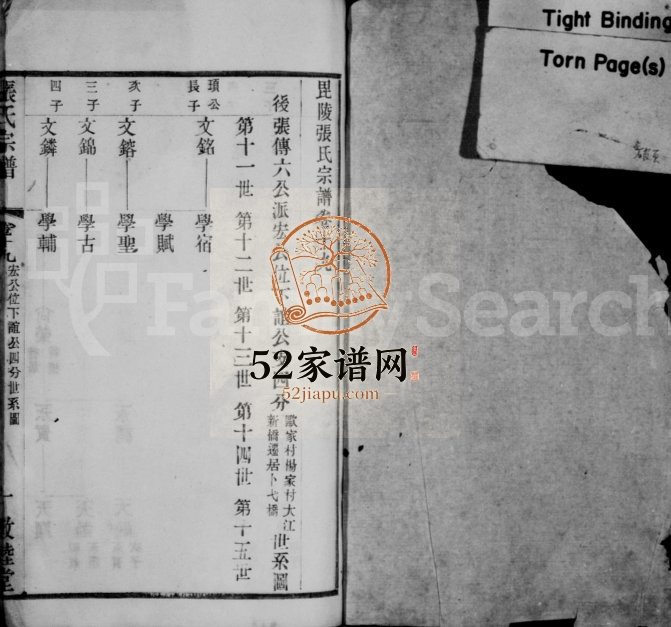 Tight Binding
Torn Page(s)
毘陵張氏宗譜卷十九
後張傳六公派宏公位下誼公四分
歐家村楊家村大江
新橋遷居卜弋橋
世系圖
第十一世 第十二世 第十三世 第十四世 第十五世
頊公
長子
文銘 學宿
學賦
次子
文鎔 學聖
三子
文錦 學古
四子
文鏻 學輔
張氏宗譜
卷十九
宏公位下誼公四分世系圖
一
敦睦堂
FamilySearch
52家谱网
52jiapu.com